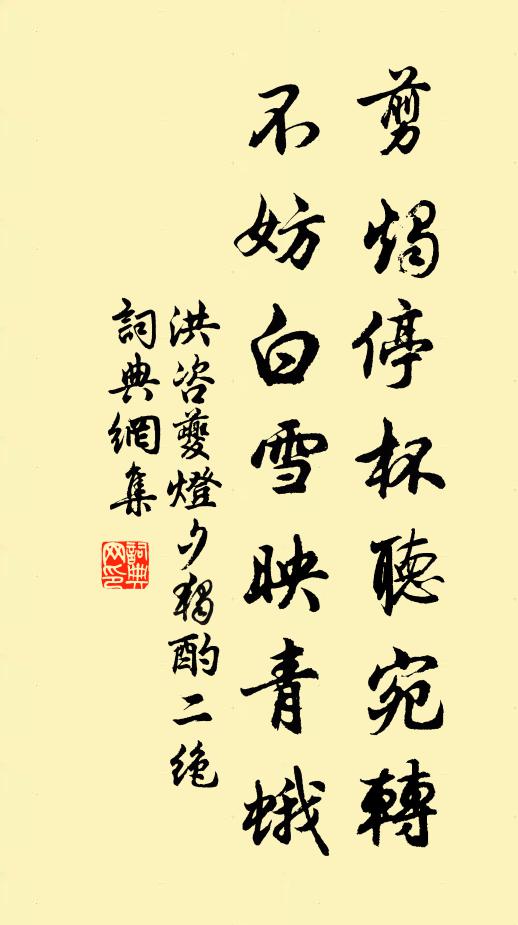 剪燭停杯聽宛轉
不妨白雪映青蛾
洪咨夔燈夕獨酌二絶
詞典網集
詞典网印